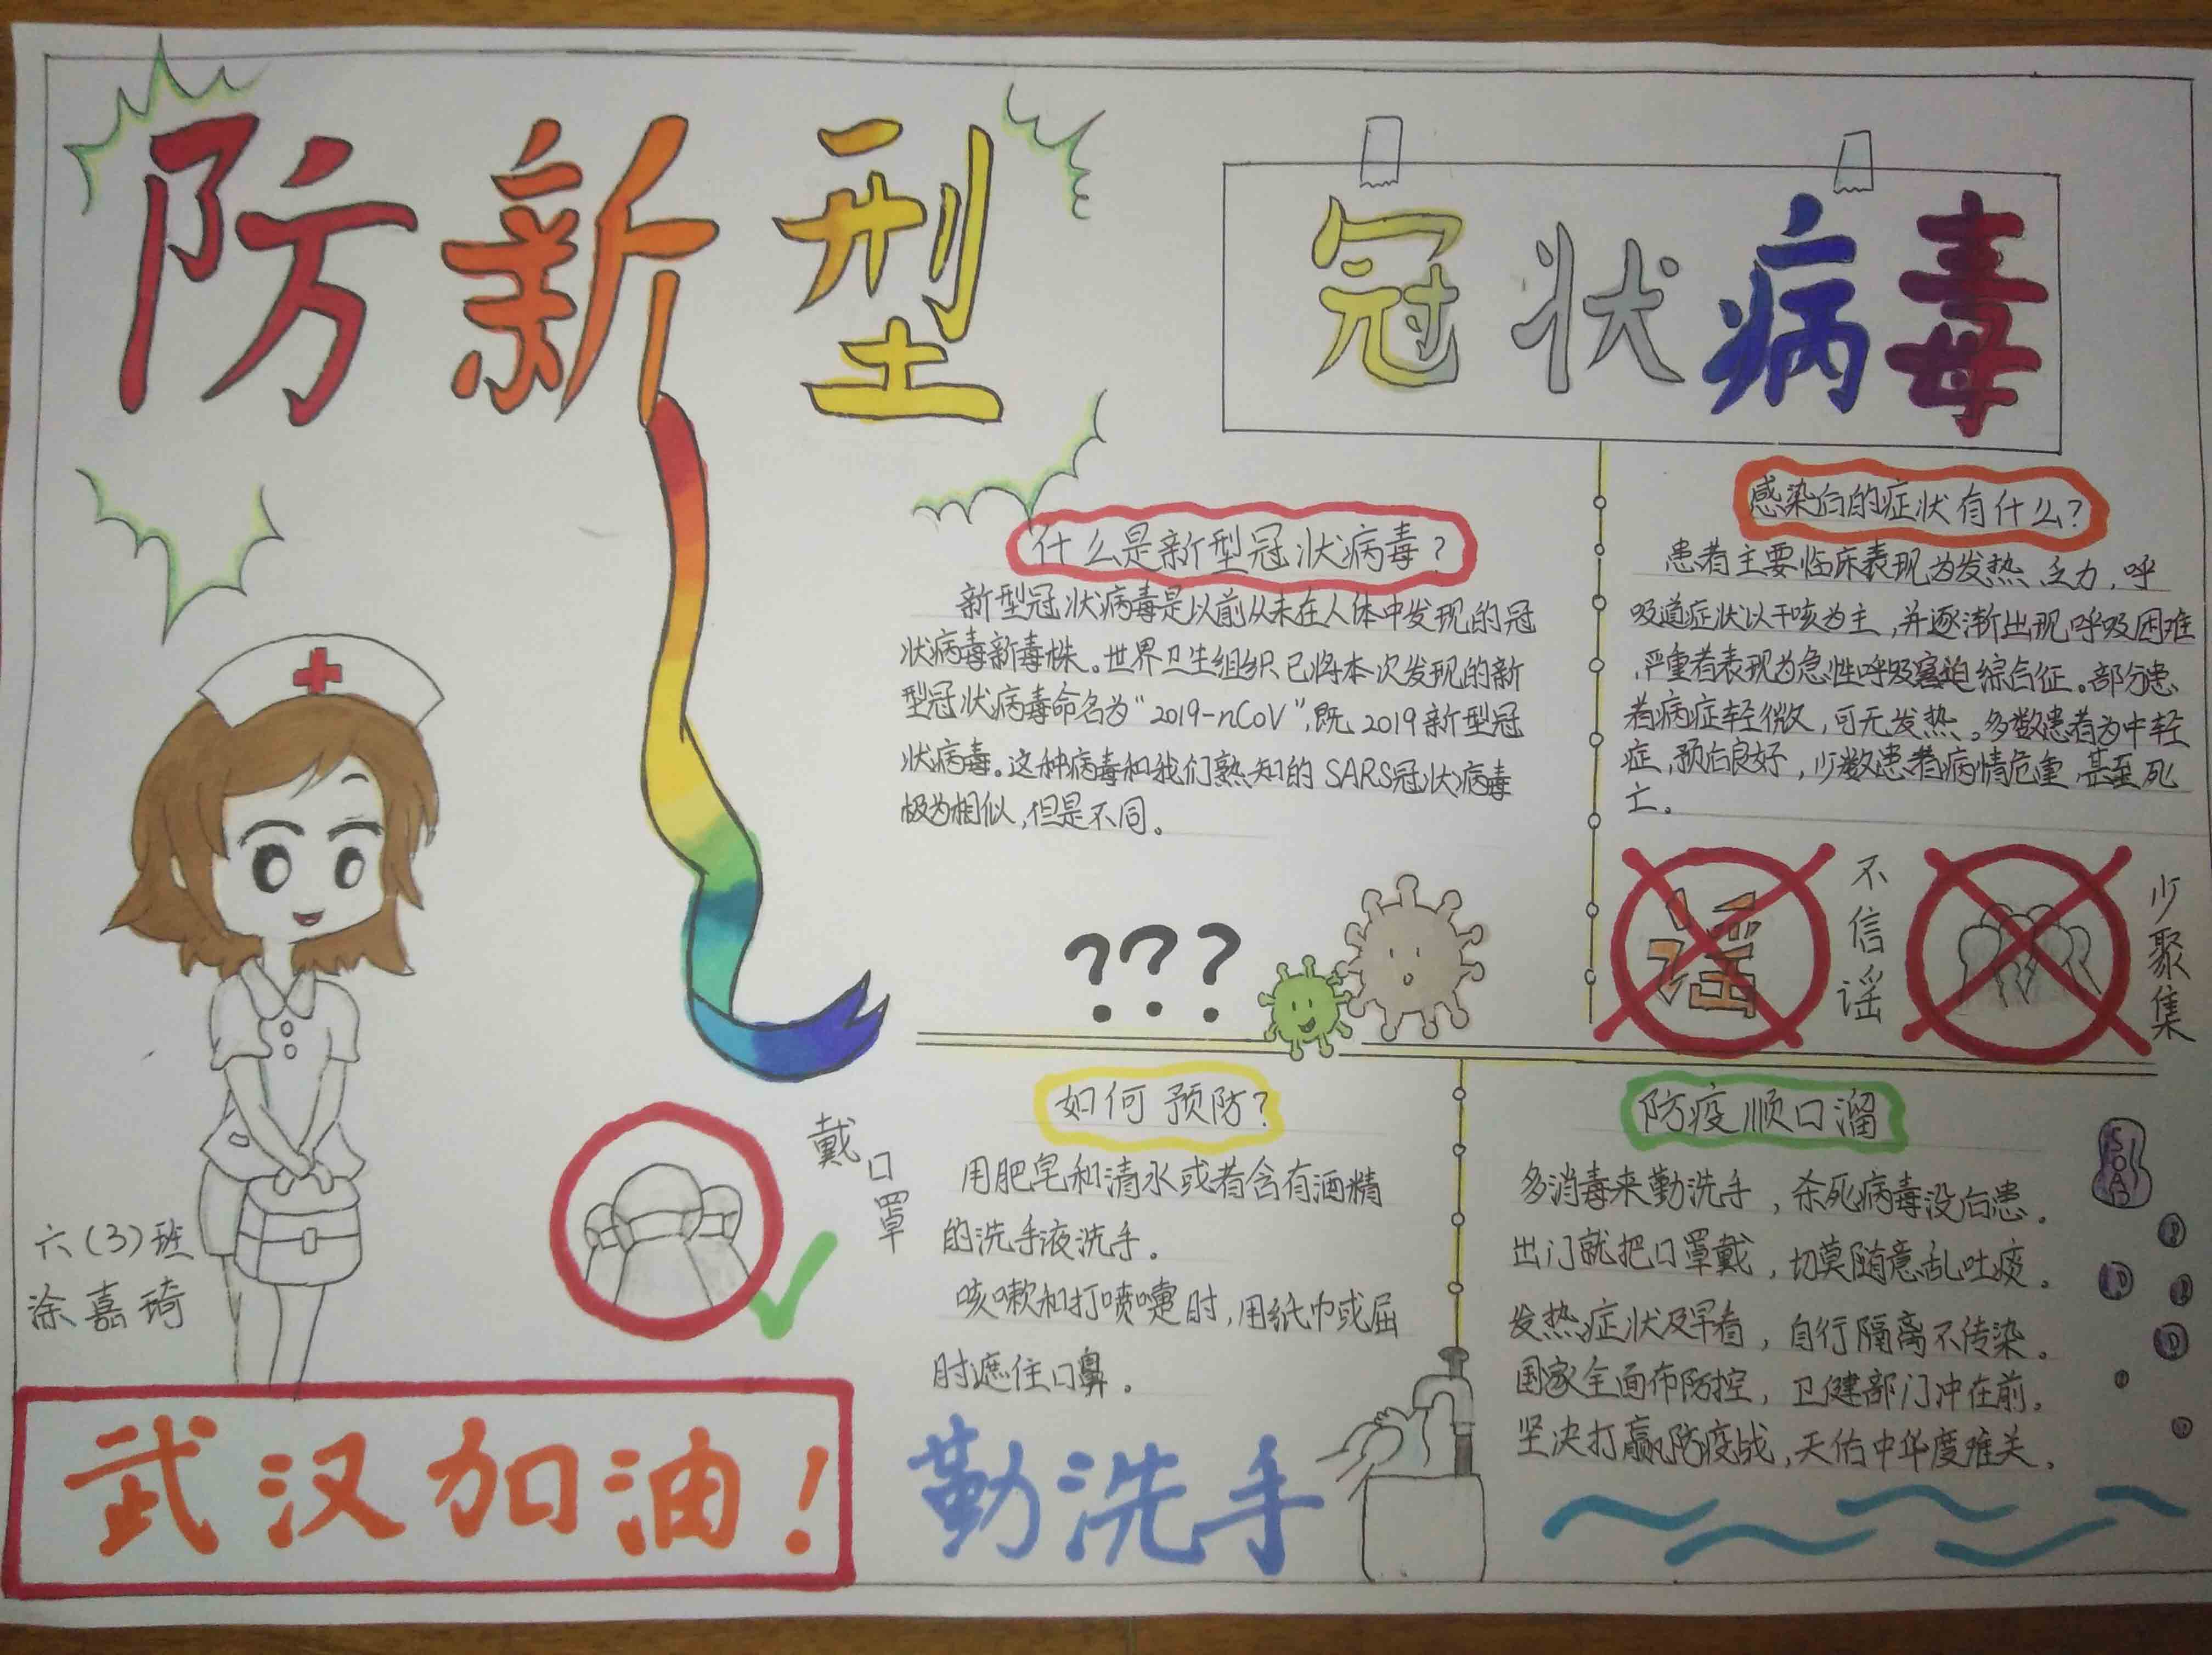 防新型
冠状病毒
什么是新型冠状病毒?
新型冠状病毒是以前从未在人体中发现的冠
状病毒新毒株。世界卫生组织已将本次发现的新
型冠状病毒命名为“2019-nCoV”,既2019新型冠
状病毒。这种病毒和我们熟知的SARS冠状病毒
极为相似,但是不同。
???
感染后的症状有什么?
患者主要临床表现为发热、乏力,呼
吸道症状以干咳为主,并逐渐出现呼吸困难
,严重者表现为急性呼吸窘迫综合征。部分患
者病症轻微,可无发热。多数患者为中轻
症,预后良好,少数患者病情危重,甚至死
亡。
谣
不信谣
少聚集
戴口罩
六(3)班
涂嘉琦
武汉加油!
如何预防?
用肥皂和清水或者含有酒精
的洗手液洗手.
咳嗽和打喷嚏时,用纸巾或屈
肘遮住口鼻.
勤洗手
防疫顺口溜
多消毒来勤洗手,杀死病毒没后患.
出门就把口罩戴,切莫随意乱吐痰.
发热症状及早看,自行隔离不传染.
国家全面布防控,卫健部门冲在前.
坚决打赢防疫战,天佑中华度难关.
SOAP